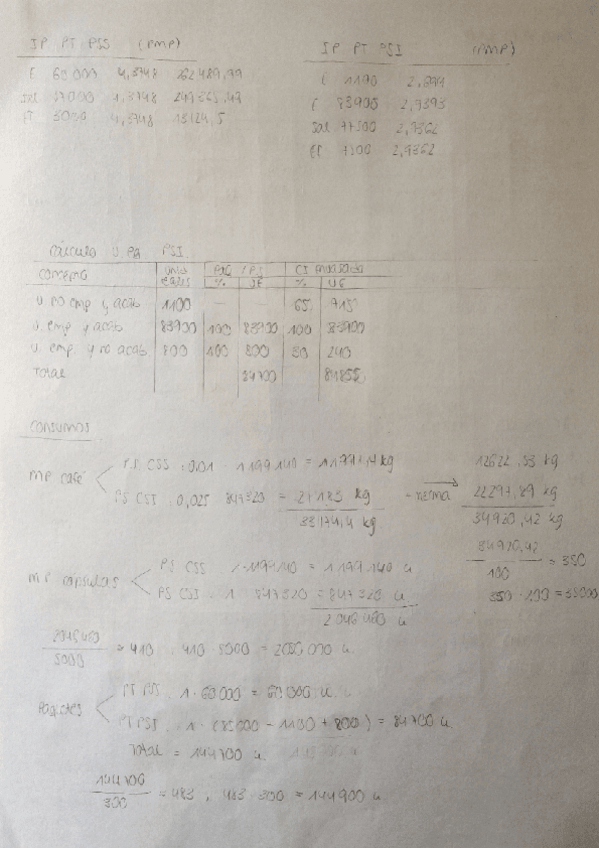 IP PT PSS (PMP)
E 60000 4,3748 262489,99
Sal 57000 4,3748 249365,49
EF 3000 4,3748 13124,5
IP PT PSI (PMP)
I 1100 2,694
E 83900 2,9393
Sal 77500 2,9362
EF 7500 2,9362
Cálculo U.PR. PSI
CONCEPTO | Unid reales | | CI
% | UE | % | UE
U. no emp y acab 1100 — — 65 715
U. emp y acab 83900 100 83900 100 83900
U. emp. y no acab. 800 100 800 30 240
Total 84700 84855
CONSUMOS
MP café
PS CSS : 0,01 · 1199140 = 11991,4 kg
PS CSI : 0,025 847320 = 21183 kg
33174,4 kg
→ merma
12622,53 kg
22297,89 kg
34920,42 kg
34920,42 / 100 = 350
350 · 100 = 35000
MP cápsulas
PS CSS 1·1199140 = 1199140 u
PS CSI · 1 847320 = 847320 u
2046460 u
2046460 / 5000 = 410 , 410 5000 = 2050000 u.
Paquetes
PT PSS · 1 · 60000 = 60000 u.
PT PSI · 1 · (85000 - 1100 + 800) = 84700 u.
Total = 144700 u.
144700 / 300 = 483 , 483 300 = 144900 u